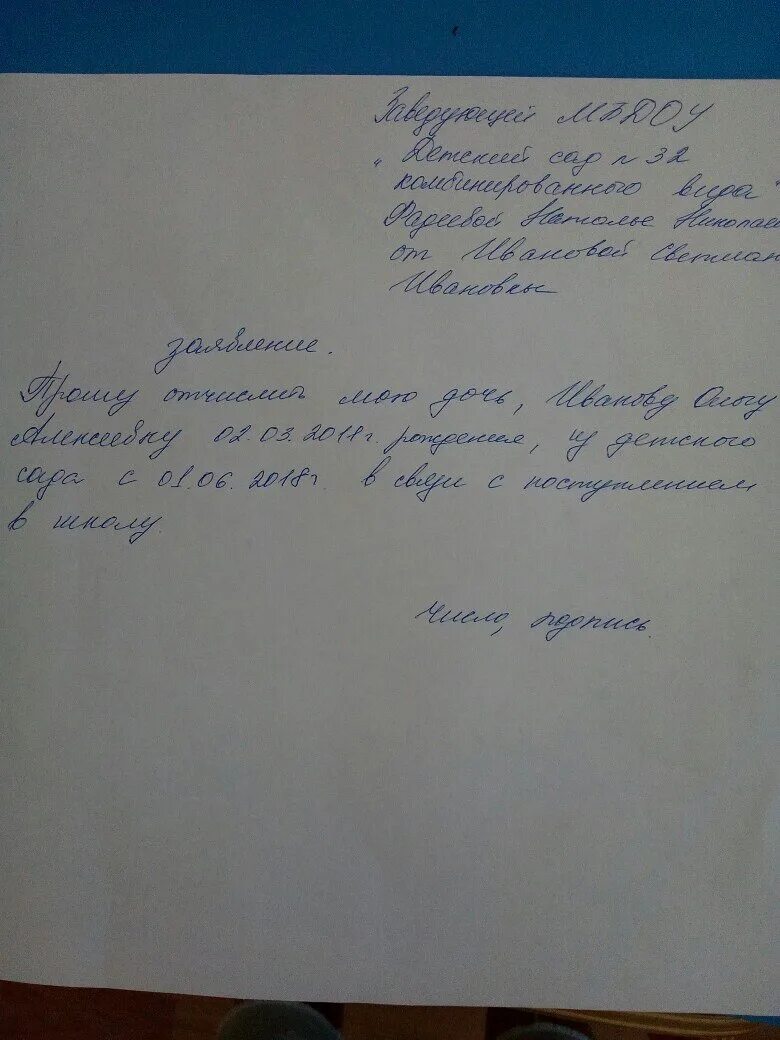 Заведующей МБДОУ
„Детский сад n 32
комбинированного вида"
Фадеевой Наталье Николаев
от Ивановой Светлан
Ивановны
заявление.
Прошу отчислить мою дочь, Иванову Ольгу
Алексеевну 02.03.2011г. рождения, из детского
сада с 01.06.2018г. в связи с поступлением
в школу.
число, подпись.